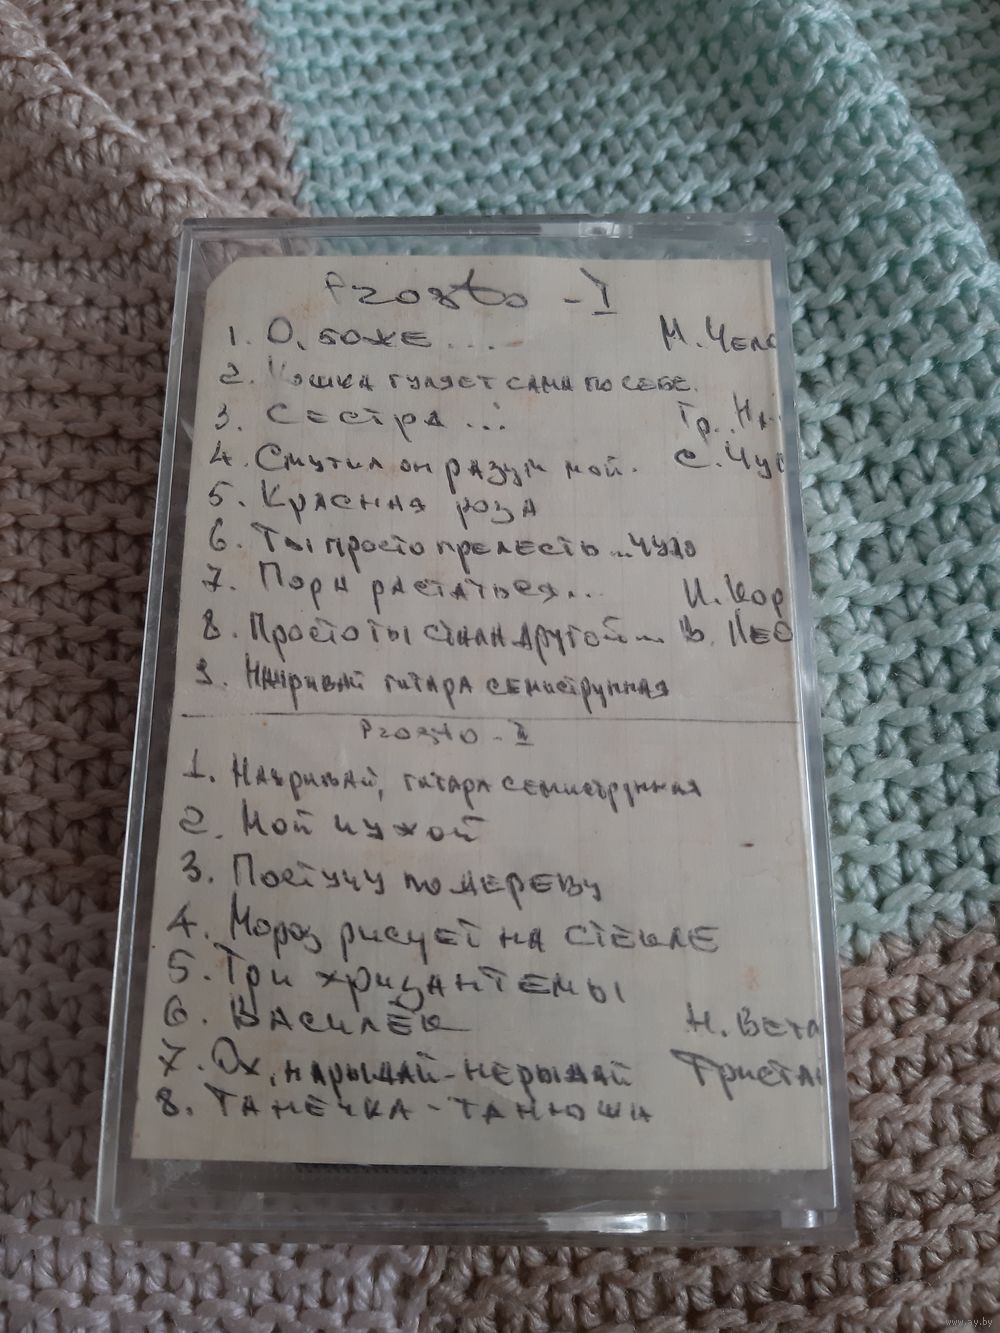 Prosto - I
1. О, боже... М. Чело
2. Кошка гуляет сама по себе.
3. Сестра... Гр. На
4. Смутил он разум мой. С. Чум
5. Красная роза
6. Ты просто прелесть... чудо
7. Пора растаться... И. Кор
8. Просто ты стала другой... В. Нео
9. Наяривай гитара семиструнная
Prosto - II
1. Наяривай, гитара семиструнная
2. Мой чужой
3. Постучу по дереву
4. Мороз рисует на стекле
5. Три хризантемы
6. Василёк Н. Вета
7. Ох, нарыдай-нерыдай Тристан
8. Танечка-Танюша
www.ay.by